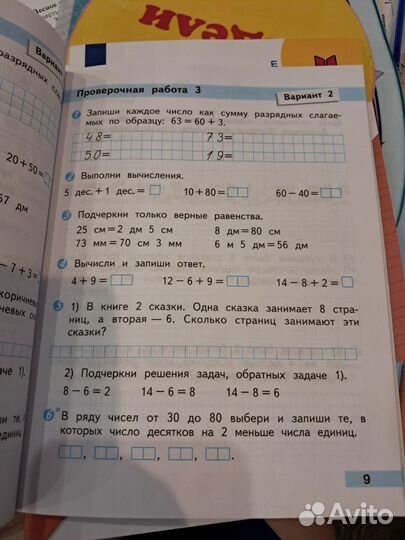 Лесное
Вариант
разрядных сла
20+50=
57 дм
– 7 + 3 =
даче 1).
единиц
Проверочная работа 3
Вариант 2
1 Запиши каждое число как сумму разрядных слагае-
мых по образцу: 63 = 60 + 3.
48= 73=
50= 19=
2 Выполни вычисления.
5 дес. + 1 дес. = 10 + 80 = 60 – 40 =
3 Подчеркни только верные равенства.
25 см = 2 дм 5 см 8 дм = 80 см
73 мм = 70 см 3 мм 6 м 5 дм = 56 дм
4 Вычисли и запиши ответ.
4 + 9 = 12 – 6 + 9 = 14 – 8 + 2 =
5 1) В книге 2 сказки. Одна сказка занимает 8 стра-
ниц, а вторая — 6. Сколько страниц занимают эти
сказки?
2) Подчеркни решения задач, обратных задаче 1).
8 – 6 = 2 14 – 6 = 8 14 – 8 = 6
6* В ряду чисел от 30 до 80 выбери и запиши те, в
которых число десятков на 2 меньше числа единиц.
, , , , .
9
Avito